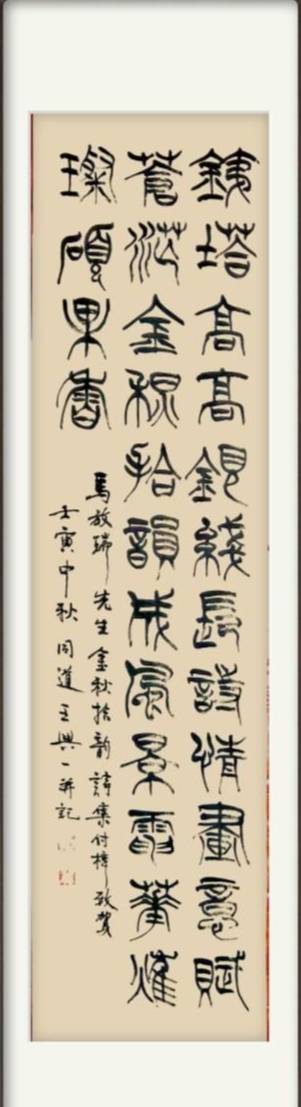 銕塔高高銀綫長詩情畫意賦
蒼茫金秋拾韻成風景電華
璨碩果香
馬放瑞先生金秋拾韻詩集付梓致賀
壬寅中秋同道王興一并記